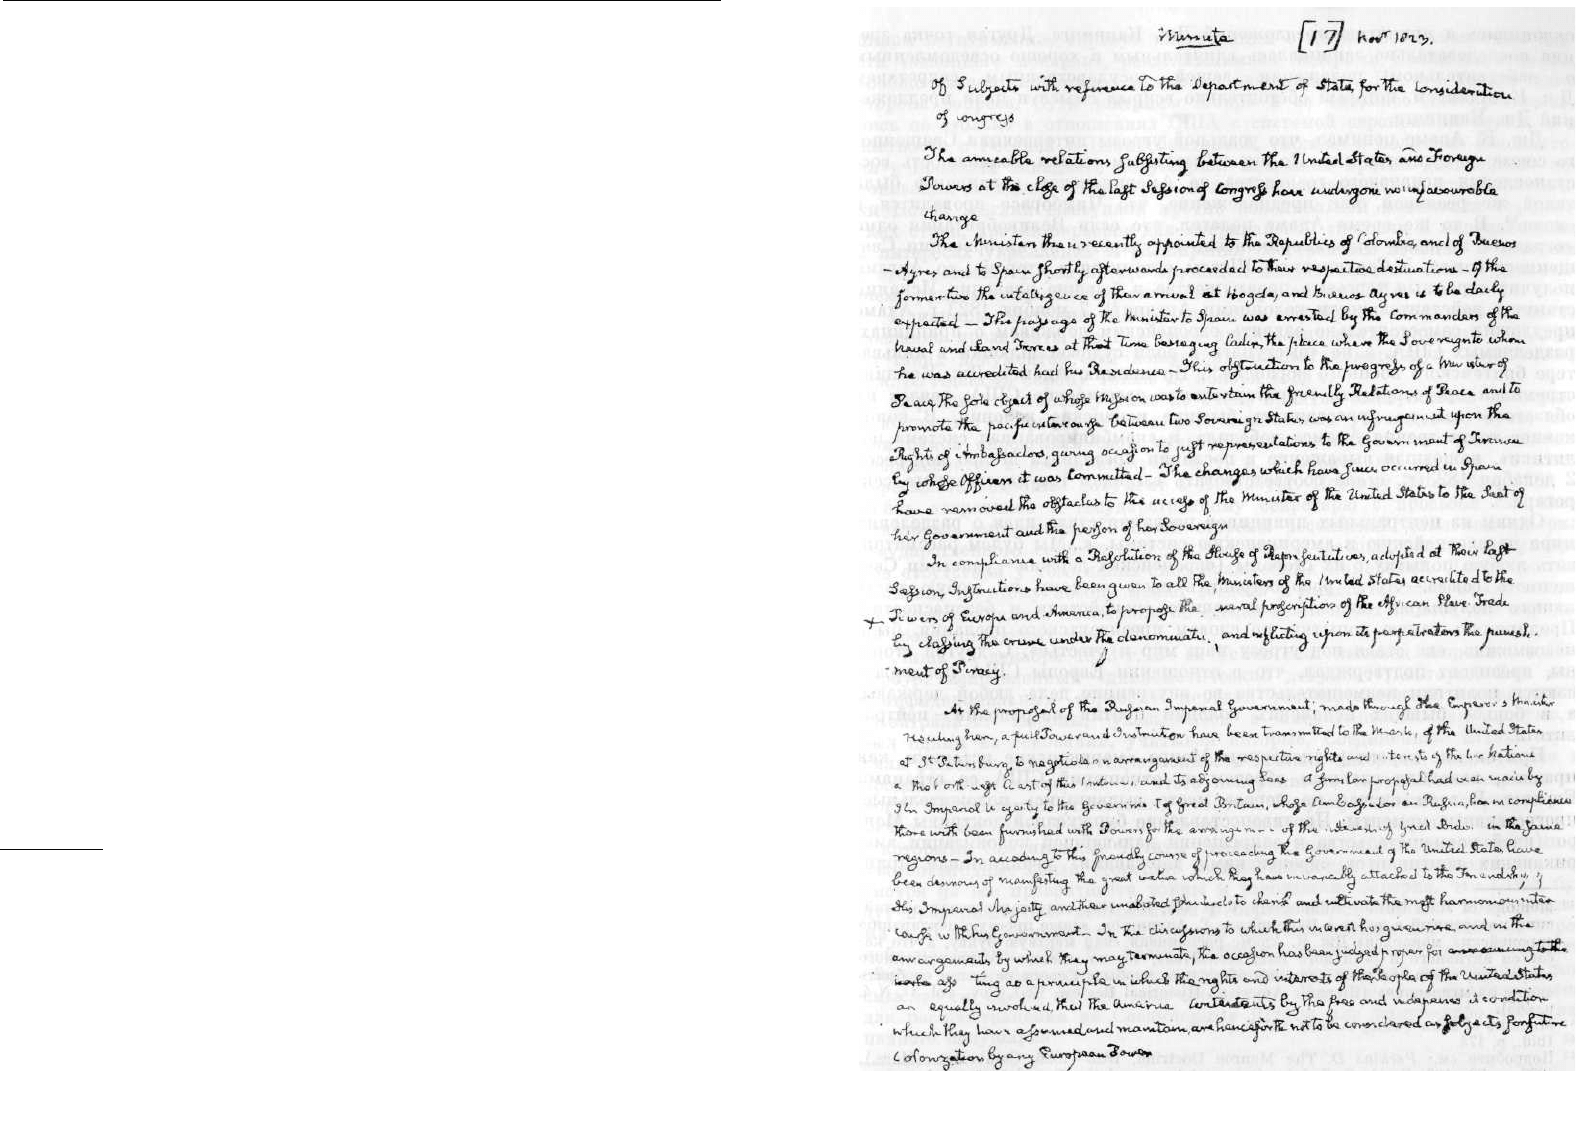 Minute [17] Novr 1823.
Of Subjects with reference to the Department of State, for the consideration
of congress
The amicable relations subsisting between the United States and Foreign
Powers at the close of the last Session of Congress have undergone no unfavourable
change
The Ministers then recently appointed to the Republics of Colombia, and of Buenos
-Ayres and to Spain shortly afterwards proceeded to their respective destinations - Of the
former two the intelligence of their arrival at Bogota, and Buenos Ayres is to be daily
expected - The passage of the Minister to Spain was arrested by the Commanders of the
Naval and Land Forces at that time besieging Cadiz, the place where the Sovereign to whom
he was accredited had his Residence - This obstruction to the progress of a Minister of
Peace, the sole object of whose Mission was to entertain the friendly Relations of Peace and to
promote the pacific intercourse between two Sovereign States, was an infringement upon the
Rights of Ambassadors, giving occasion to just representations to the Government of France
by whose Officers it was Committed - The changes which have since occurred in Spain
have removed the obstacles to the access of the Minister of the United States to the Seat of
her Government and the person of her Sovereign
In compliance with a Resolution of the House of Representatives, adopted at their last
Session, Instructions have been given to all the Ministers of the United States accredited to the
Powers of Europe and America, to propose the neral proscription of the African Slave Trade
by classing the crime under the denominati , and inflicting upon its perpetrators the punish
-ment of Piracy.
At the proposal of the Russian Imperial Government, made through the Emperor's Minister
residing here, a full Power and Instruction have been transmitted to the of the United States
at St Petersburg, to negotiate an arrangement of the respective rights and interests of the two Nations
on the orth West Coast of this Continent, and its adjoining Seas A similar proposal had been made by
His Imperial Majesty to the Governme t of Great Britain, whose Ambassador in Russia, has in compliance
therewith been furnished with Powers for the arrangement of the interests of Great Britain in the same
regions - In acceding to this friendly course of proceeding the Government of the United States have
been desirous of manifesting the great value which they have invariably attached to the Friendship of
His Imperial Majesty and their unabated to cherish and cultivate the most harmonious inter
course with his Government - In the discussions to which this interest has given rise, and in the
arrangements by which they may terminate, the occasion has been judged proper for announcing to the
ass ting as a principle in which the rights and interests of the People of the United States
are equally involved, that the America Continents by the free and independent condition
which they have assumed and maintain, are henceforth not to be considered as subjects for future
Colonization by any European Power